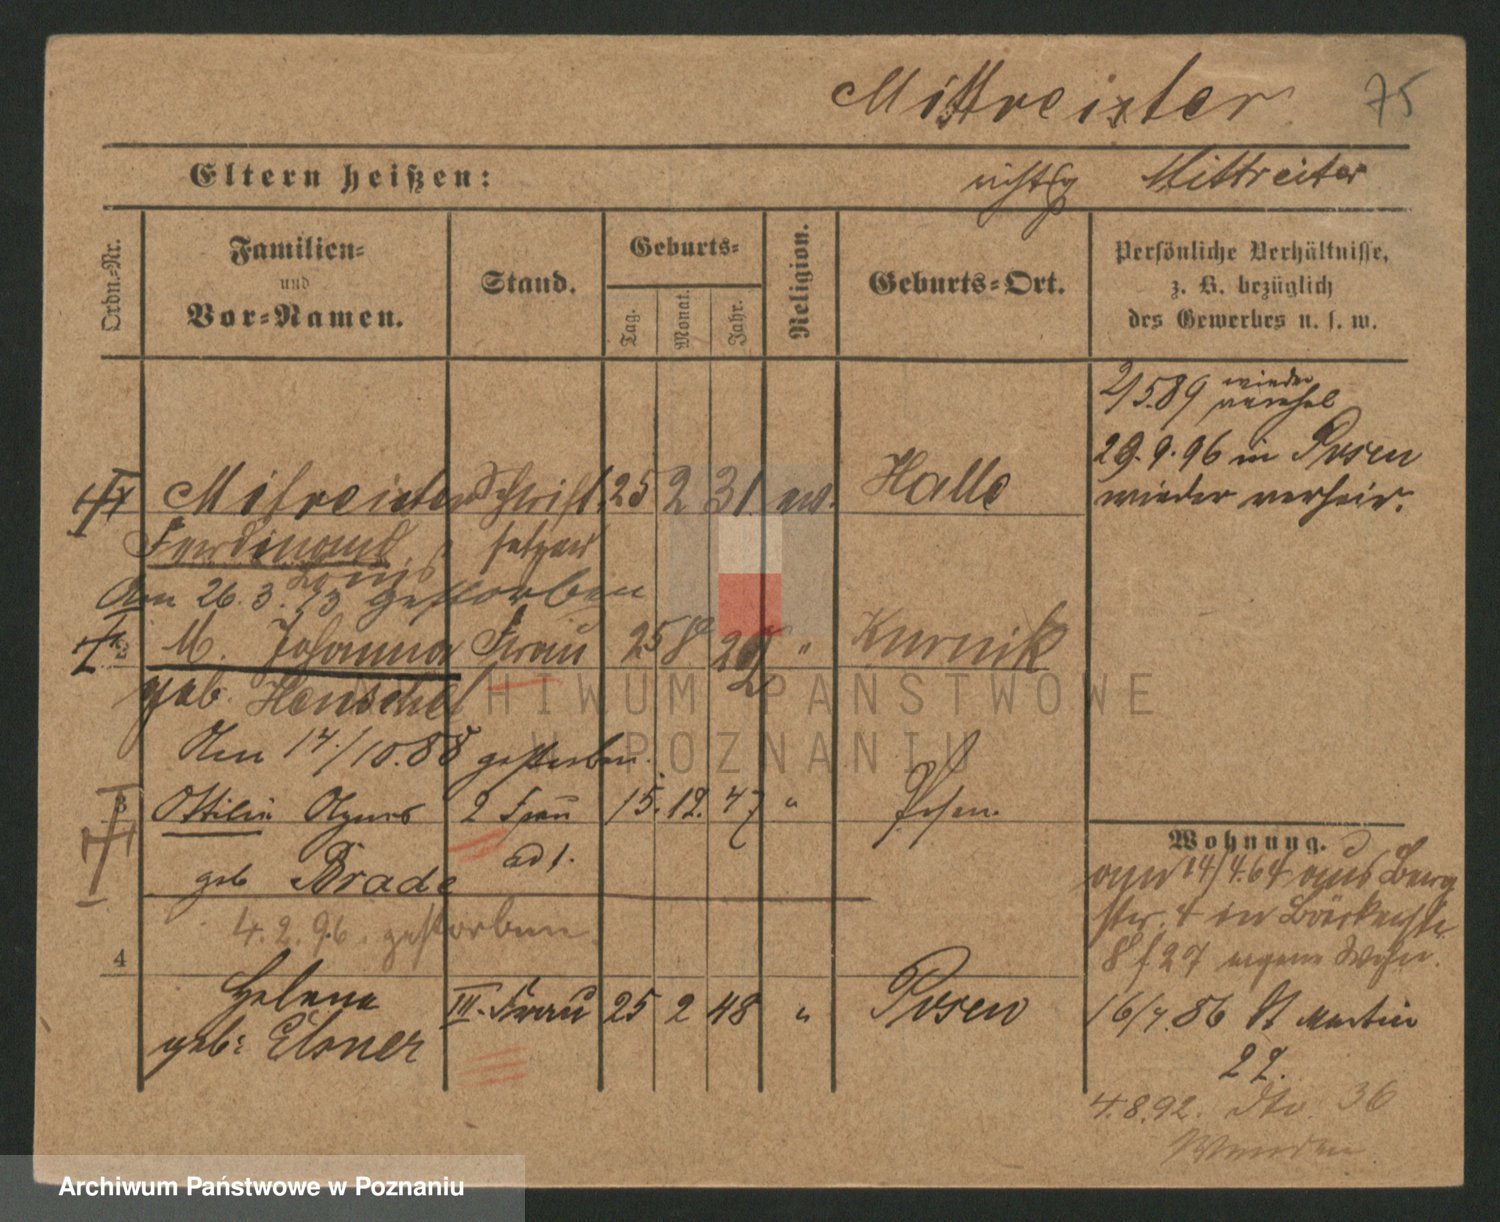 Mittreister 75
Eltern heißen:
richtig Mittreiter
Ordn.-Nr.
Familien-
und
Vor-Namen.
Stand.
Geburts-
Tag.
Monat.
Jahr.
Religion.
Geburts-Ort.
Persönliche Verhältnisse,
z. B. bezüglich
des Gewerbes u. s. w.
2/5.89 wieder
29.9.96 in Posen
wieder verheir.
Mitreiter Schrift 25 2 31 ev. Halle
Ferdinand setzer
Louis
Am 26.3. gestorben
2 M. Johanna Frau 25 8 " Kurnik
geb. Henschel
Am 14./10.88 gestorben.
3 Ottilie Agnes 2 Frau 15. 12. 47 " Posen.
ad 1.
geb Brade
4.2.96. gestorben.
4
Helena III. Frau 25 2 48 " Posen
geb: Elsner
Wohnung.
14/4.64 aus Berg
str. 4 in Bäckerstr.
8 f 27 eigene Wohn.
16/4.86 St Martin
27.
4.8.92. dto. 36
ARCHIWUM PAŃSTWOWE
W POZNANIU
Archiwum Państwowe w Poznaniu